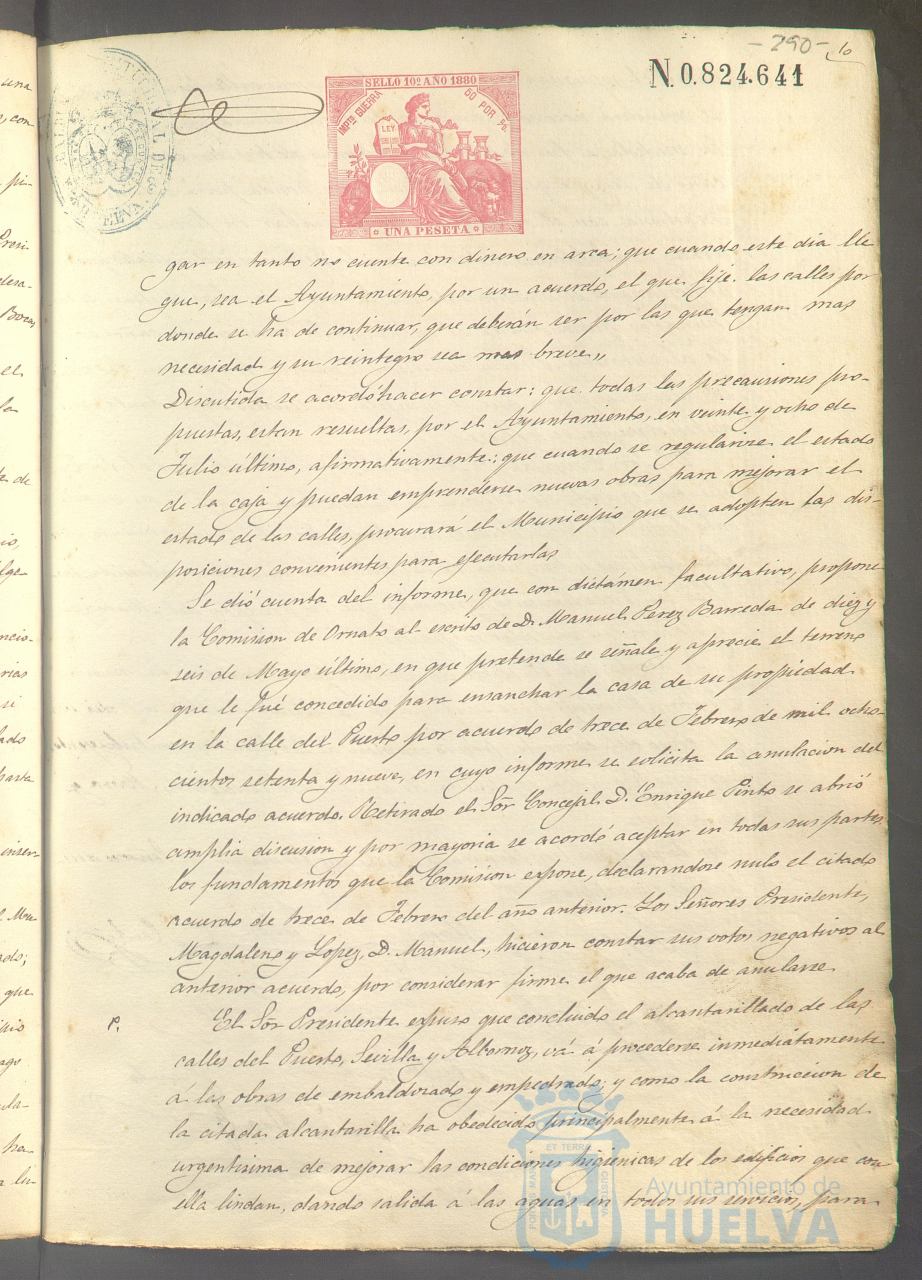 -290- 10
N.0.824.641
SELLO 10º AÑO 1880
IMPTO GUERRA 50 POR %
LEY
UNA PESETA
gar en tanto no cuente con dinero en arca; que cuando este dia lle
gue, sea el Ayuntamiento, por un acuerdo, el que fije las calles por
donde se ha de continuar, que deberán ser por las que tengan mas
necesidad y su reintegro sea mas breve,,
Discutida se acordó hacer constar: que todas las precausiones pro-
puestas, estan resueltas, por el Ayuntamiento, en veinte y ocho de
Julio último, afirmativamente: que cuando se regularize el estado
de la caja y puedan emprenderse nuevas obras para mejorar el
estado de las calles, procurará el Municipio que se adopten las dis-
posiciones convenientes para ejecutarlas
Se dió cuenta del informe, que con dictámen facultativo, propone
la Comision de Ornato al escrito de D. Manuel Perez Barreda de diez y
seis de Mayo último, en que pretende se señale y aprecie el terreno
que le fué concedido para ensanchar la casa de su propiedad
en la calle del Puerto por acuerdo de trece de Febrero de mil ocho-
cientos setenta y nueve, en cuyo informe se solicita la anulacion del
indicado acuerdo. Retirado el Sor Concejal D. Enrique Pinto se abrió
amplia discusion y por mayoria se acordó aceptar en todas sus partes
los fundamentos que la Comision expone, declarandose nulo el citado
acuerdo de trece de Febrero del año anterior. Los Señores Presidente,
Magdaleno y Lopez, D. Manuel, hicieron constar sus votos negativos al
anterior acuerdo, por considerar firme el que acaba de anularse
P. El Sor Presidente expuso que concluido el alcantarillado de las
calles del Puerto, Sevilla y Albornoz, vá á procederse inmediátamente
á las obras de embaldosado y empedrado; y como la construccion de
la citada alcantarilla ha obedecido principalmente á la necesidad
urgentisima de mejorar las condiciones higienicas de los edificios que con
ella lindan, dando salida á las aguas en todos sus servicios, para
Ayuntamiento de
HUELVA